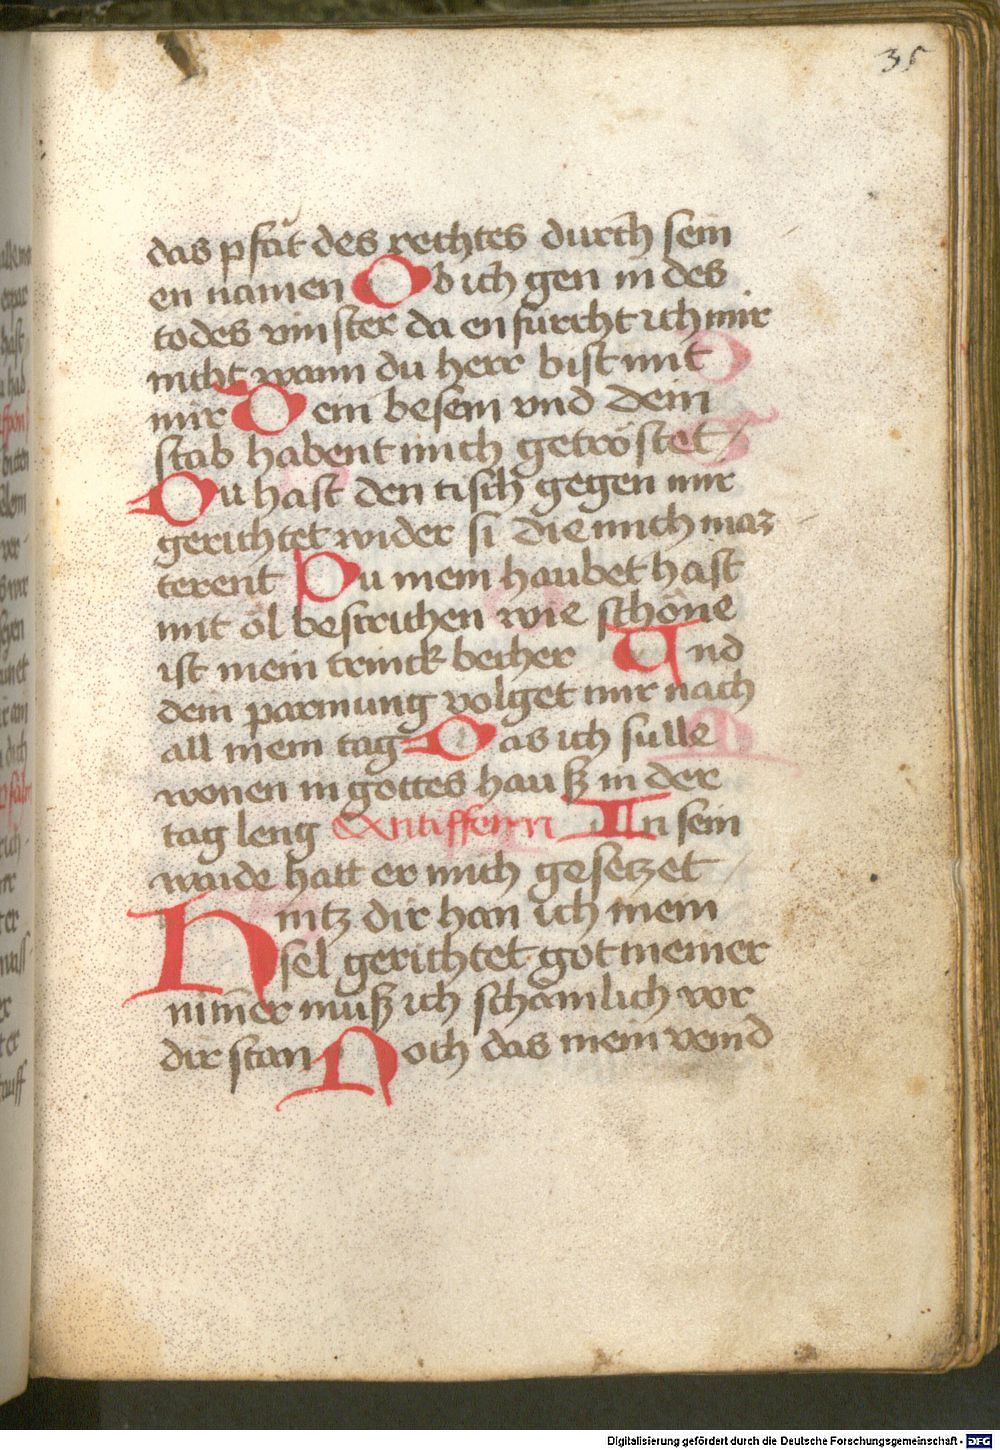 35
das pfat des rechtes durch sein
en namen Ob ich gen in des
todes vinster da en furcht ich mir
nicht wann du herr bist mit
mir Dein besem vnd dein
stab habent mich getröstet /
Du hast den tisch gegen mir
gerichtet wider si die mich maz
terent Du mein haubet hast
mit öl bestrichen wie schöne
ist mein trinck becher Und
dein parmung volget mir nach
all mein tag Das ich sulle
wonen in gottes hauß in der
tag leng Antiffenn In sein
waide hatt er mich gesetzet /
Hintz dir han ich mein
sel gerichtet got meiner
nimer muß ich schämlich vor
dir stan Noch das mein veind
Digitalisierung gefördert durch die Deutsche Forschungsgemeinschaft - DFG